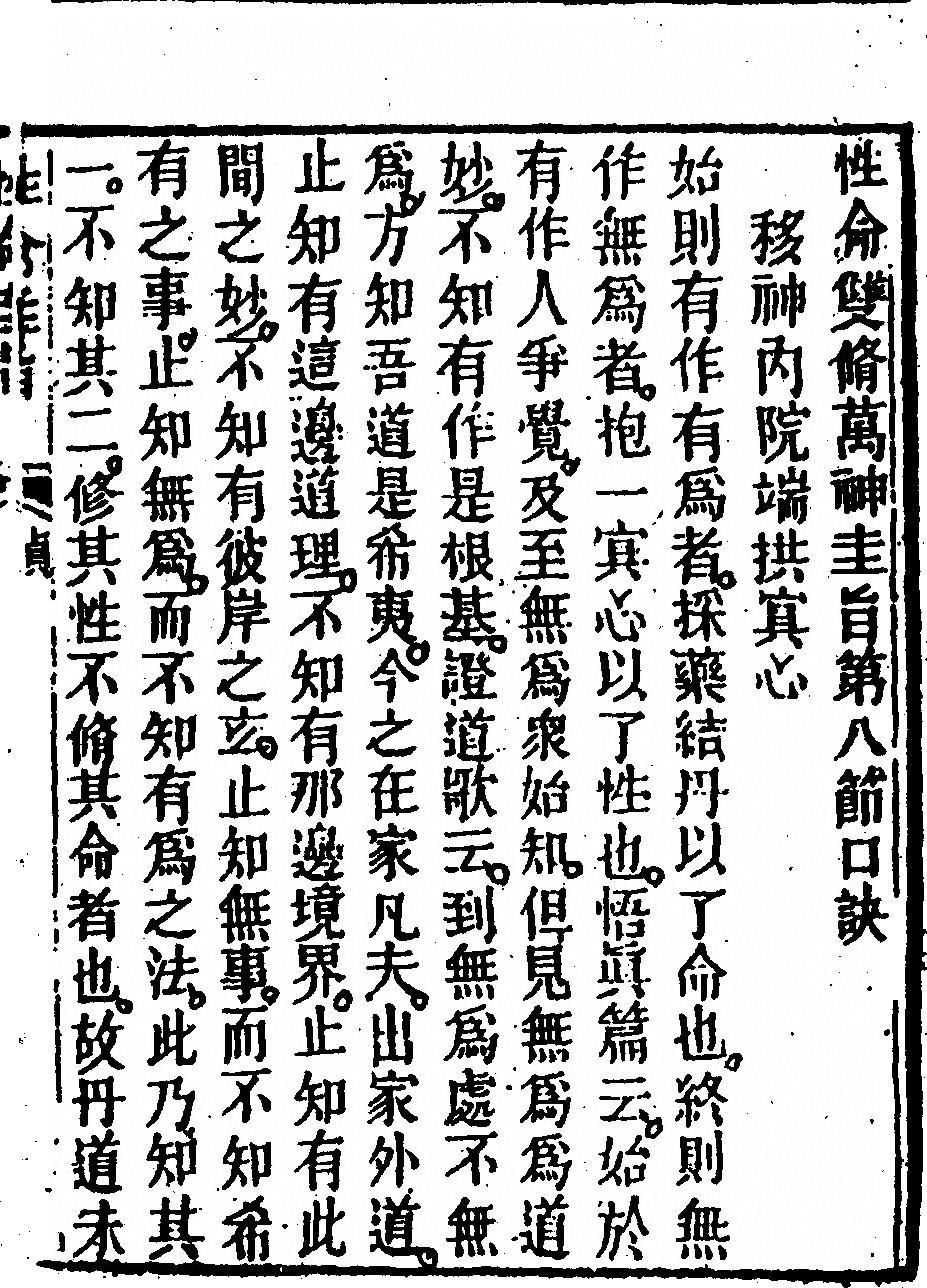 性命雙脩萬神圭旨第八節口訣
移神內院端拱寘心
始則有作有爲者。採藥結丹以了命也。終則無
作無爲者。抱一寘心以了性也。悟眞篇云。始於
有作人爭覺。及至無爲衆始知。但見無爲爲道
妙。不知有作是根基。證道歌云。到無爲處不無
爲。方知吾道是希夷。今之在家凡夫。出家外道。
止知有這邊道理。不知有那邊境界。止知有此
間之妙。不知有彼岸之玄。止知無事。而不知希
有之事。止知無爲。而不知有爲之法。此乃知其
一。不知其二。修其性不脩其命者也。故丹道未
貞